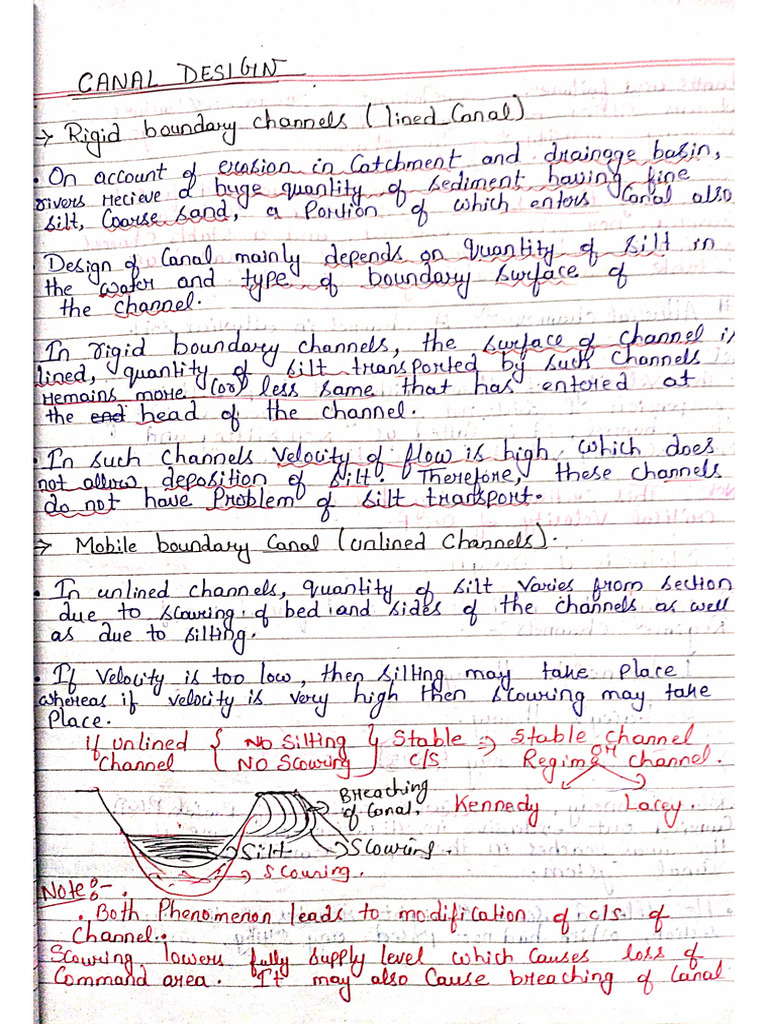 CANAL DESIGN
→ Rigid boundary channels (lined Canal)
• On account of erosion in Catchment and drainage basin,
rivers recieve a huge quantity of sediment having fine
silt, Coarse sand, a Portion of which enters Canal also
Design of Canal mainly depends on quantity of silt in
the water and type of boundary surface of
the channel.
In rigid boundary channels, the surface of channel is
lined, quantity of silt transported by such Channels
remains more (or) less same that has entered at
the end head of the channel.
• In such channels velocity of flow is high which does
not allow deposition of silt. Therefore, these channels
do not have Problem of silt transport.
→ Mobile boundary Canal (unlined Channels).
• In unlined channels, quantity of silt varies from section
due to scouring of bed and sides of the channels as well
as due to silting.
• If velocity is too low, then silting may take place
whereas if velocity is very high then scouring may take
Place.
if unlined { No Silting } Stable ⇒ Stable channel
OR
Channel { No Scouring } c/s Regime channel.
Breaching
of Canal. Kennedy Lacey.
Silt Scouring.
Scouring.
Note:-
• Both Phenomenon leads to modification of c/s of
Channel.
Scouring lowers fully supply level which causes loss of
Command area. It may also Cause breaching of Canal